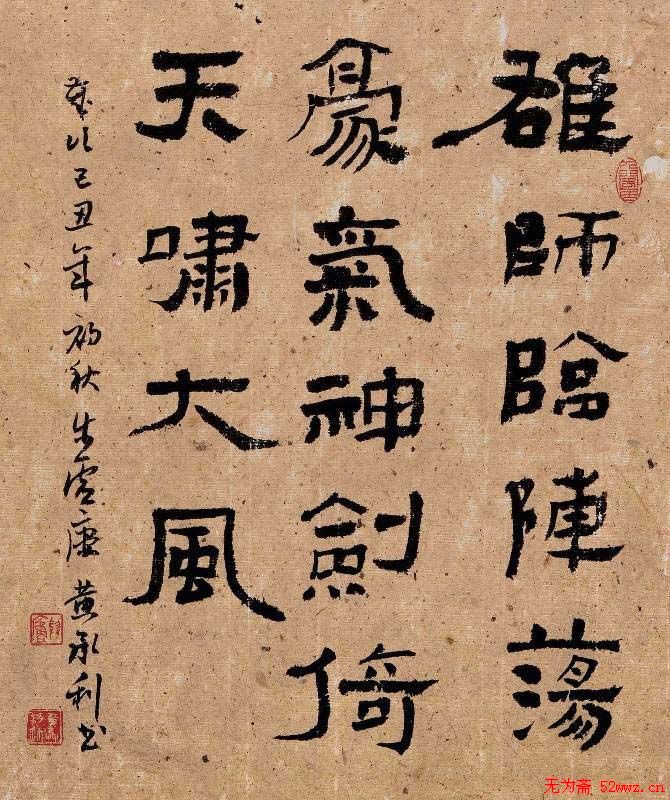 雄師臨陣蕩
豪氣神劍倚
天嘯大風
歲次己丑年初秋牛虛廬黃永利書
无为斋 52wwz.cn